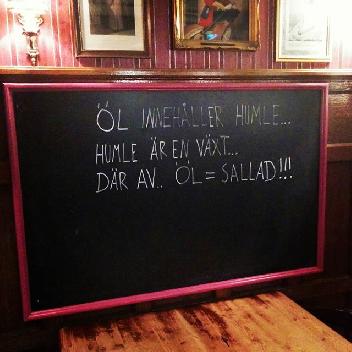 ÖL INNEHÅLLER HUMLE...
HUMLE ÄR EN VÄXT...
DÄR AV.. ÖL = SALLAD!!!